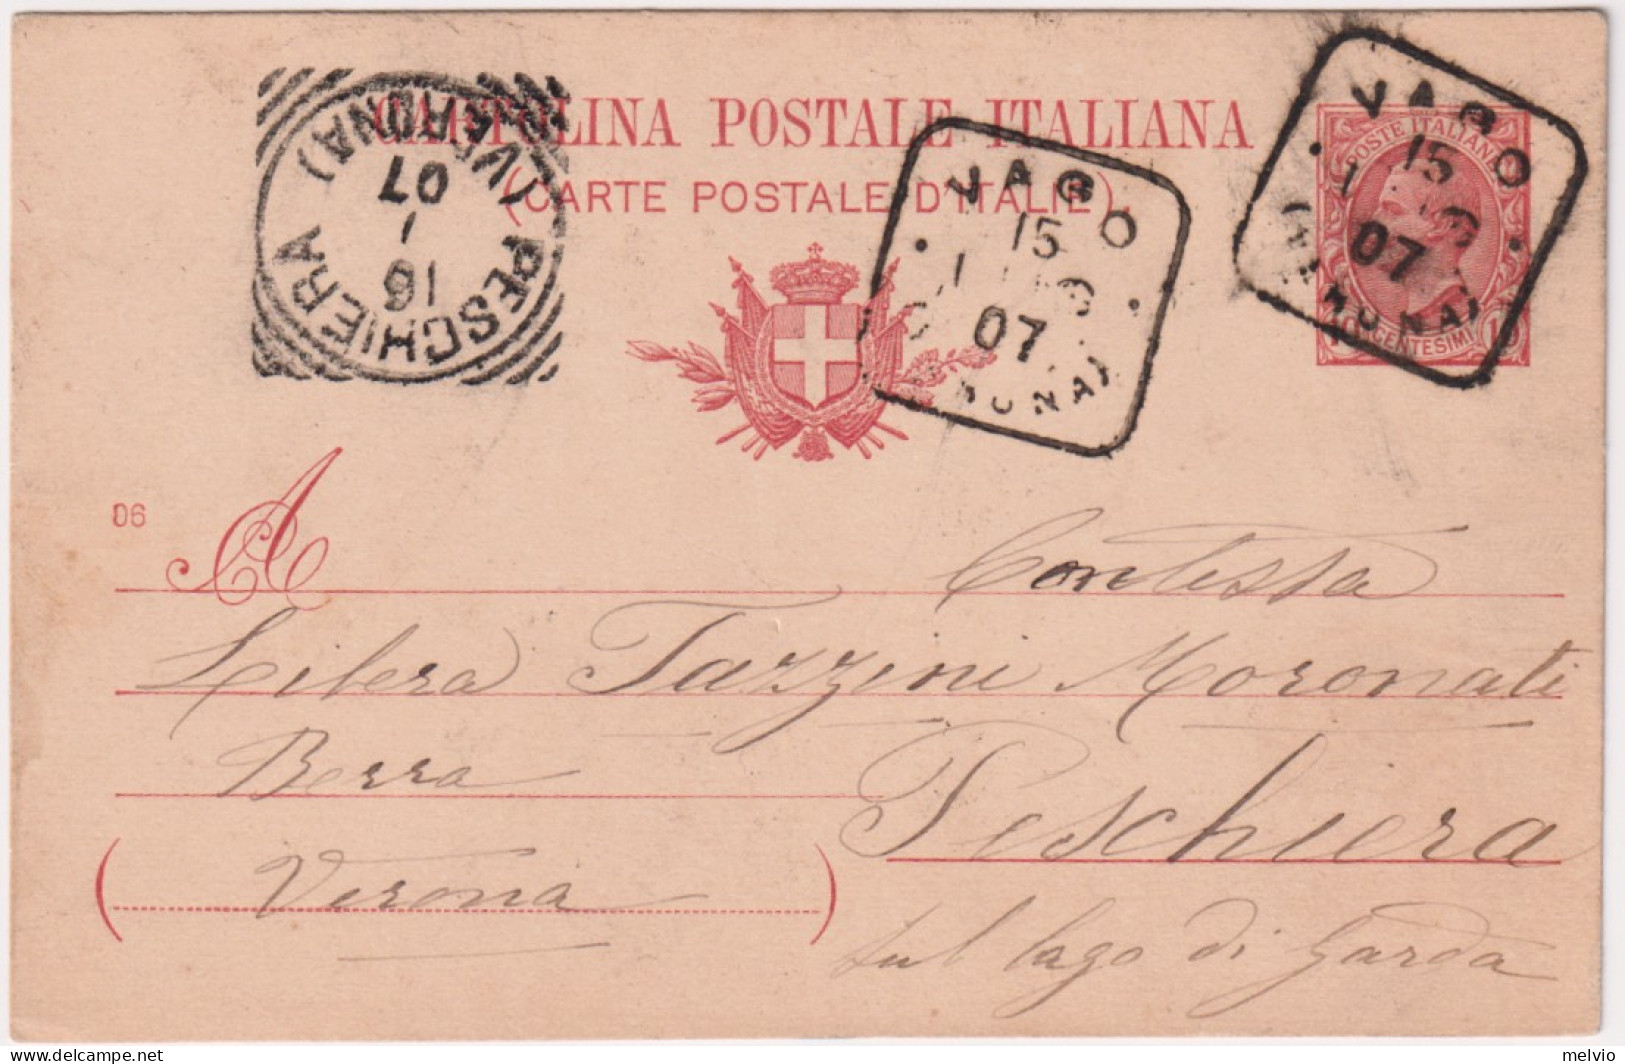 CARTOLINA POSTALE ITALIANA
(CARTE POSTALE D'ITALIE)
PESCHIERA
(VERONA)
16
1
07
VAGO
15
1
07
VAGO
15
1
07
POSTE ITALIANE
CENTESIMI
06
A
Contessa
Libera Tazzini Moronati
Berra
Peschiera
(Verona)
sul lago di Garda
melvio